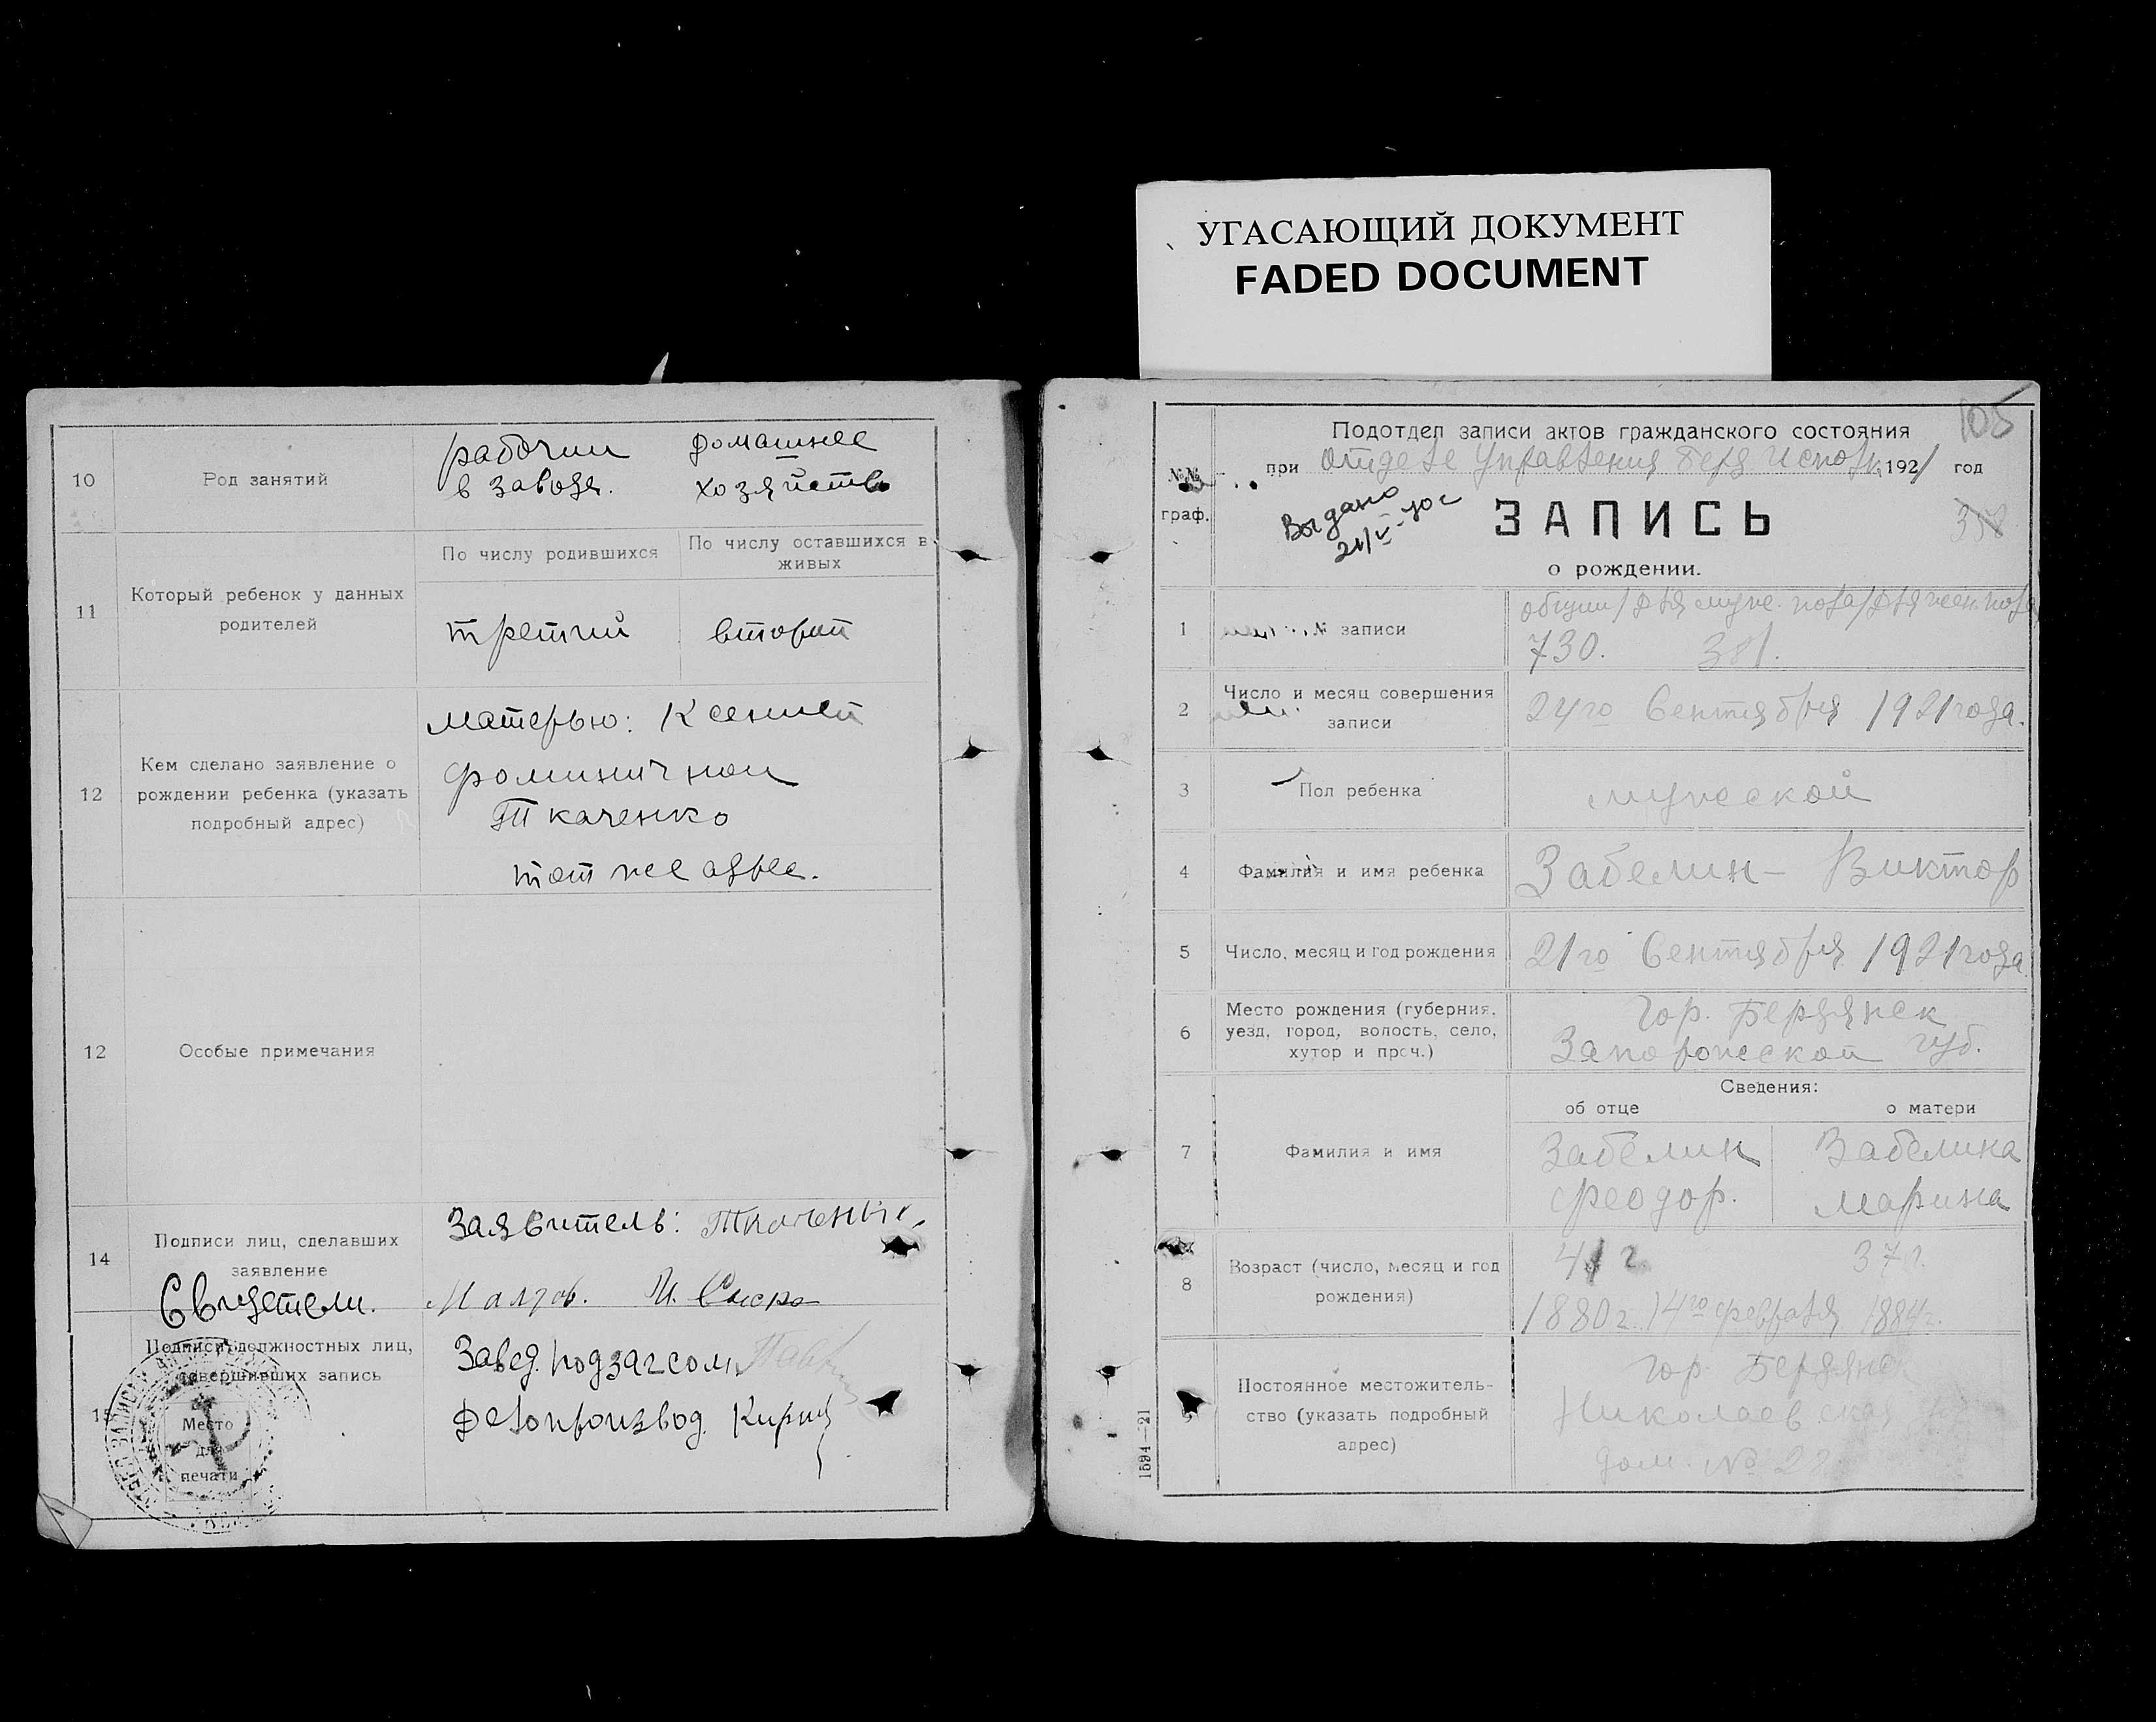 УГАСАЮЩИЙ ДОКУМЕНТ
FADED DOCUMENT
10
Род занятий
рабочий
в заводе.
домашнее
хозяйство
11
Который ребенок у данных
родителей
По числу родившихся
По числу оставшихся в
живых
третий
второй
12
Кем сделано заявление о
рождении ребенка (указать
подробный адрес)
матерью: Ксенией
Фоминичной
Ткаченко
тот же адрес.
12
Особые примечания
14
Подписи лиц, сделавших
заявление
Свидетели.
Заявитель: Ткаченко
15
Подписи должностных лиц,
совершивших запись
Место
для
печати
Завед. подзагсом
Делопроизвод.
105
Подотдел записи актов гражданского состояния
№№
граф.
при Отделе Управления Берд Исполк. 1921 год
Выдано
21/V-70г
ЗАПИСЬ
о рождении.
358
1
№ записи
общий/для муж. пола/для жен. пола
730. 381.
2
Число и месяц совершения
записи
24го Сентября 1921 года.
3
Пол ребенка
мужской
4
Фамилия и имя ребенка
Забелин - Виктор
5
Число, месяц и год рождения
21го Сентября 1921 года.
6
Место рождения (губерния,
уезд, город, волость, село,
хутор и проч.)
Гор. Бердянск
Запорожской губ.
Сведения:
об отце
о матери
7
Фамилия и имя
Забелин
Феодор.
Забелина
Марина
8
Возраст (число, месяц и год
рождения)
41 г.
37 г.
1880г. 14го февраля 1884г.
9
Постоянное местожитель-
ство (указать подробный
адрес)
гор. Бердянск
Николаевская
дом. №
1594—21